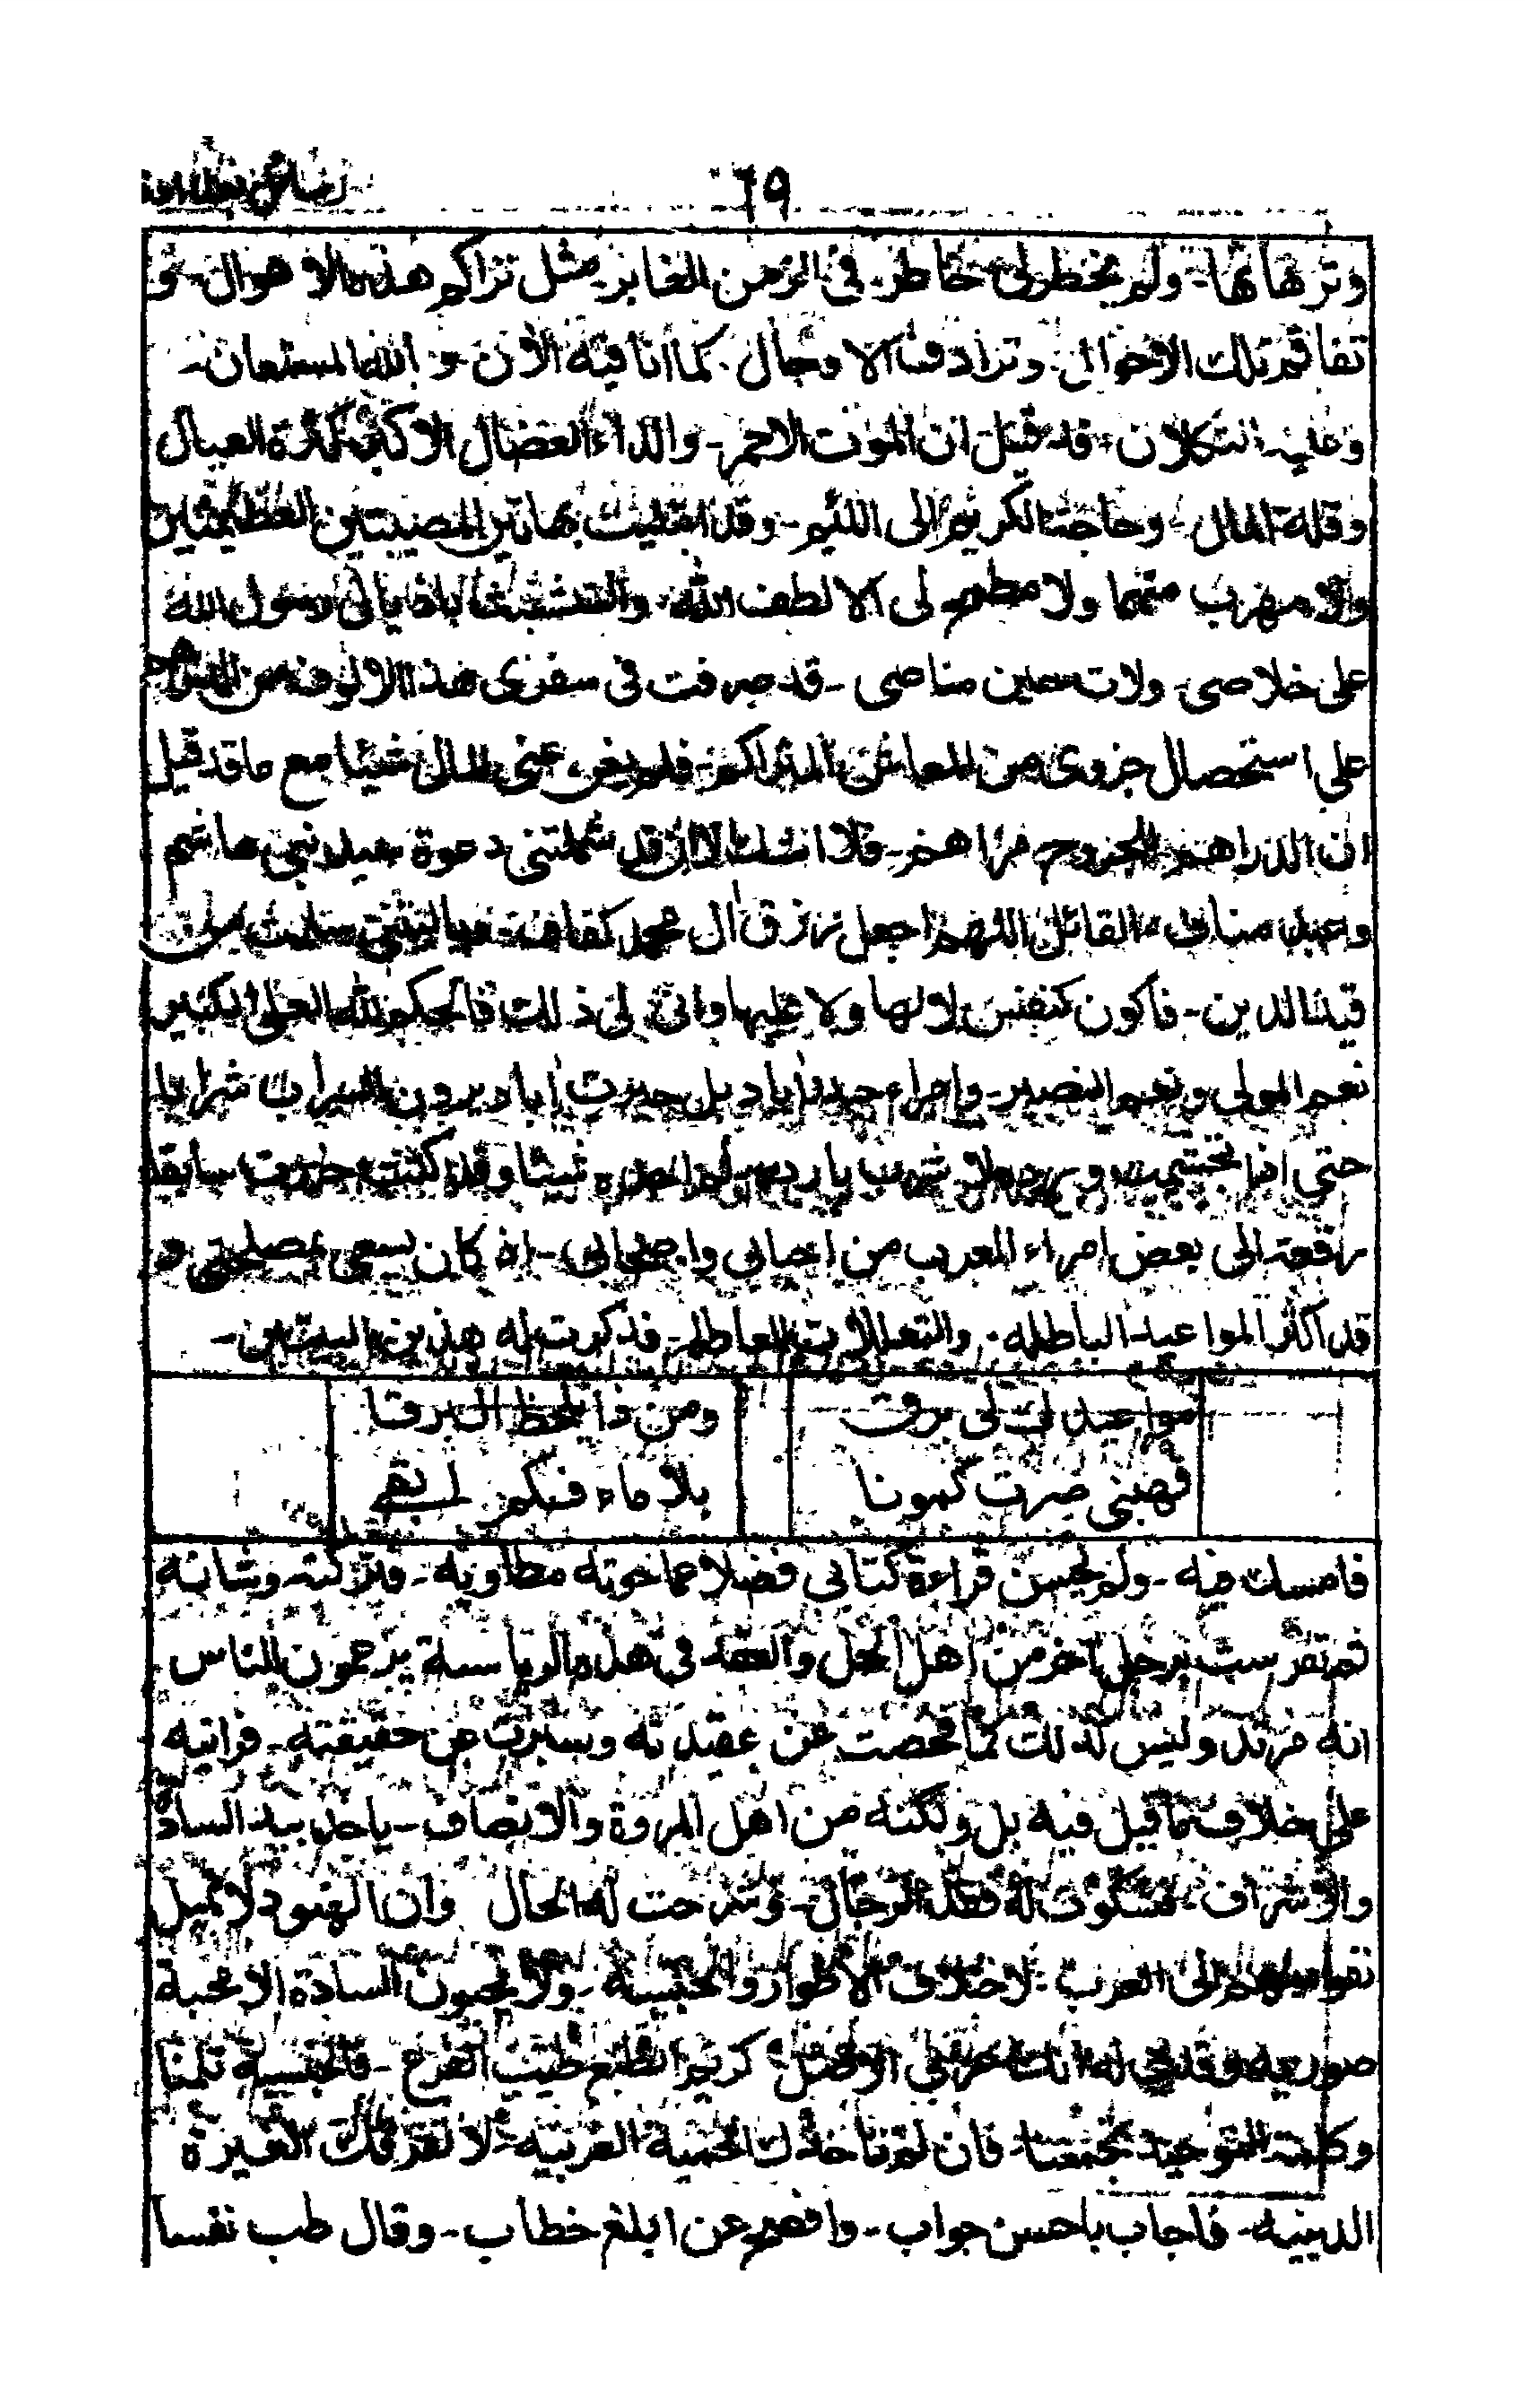 ٦٩
وترهاتها - ولم يخطر لى خاطر فى الزمن الغابر مثل تراكم هذه الاهوال - و
تفاقم تلك الاخوالى وترادف الاوجال كما انا فيه الأن و الله المستعان -
وعليه التكلان قد قيل ان الموت الاحمر - والداء العضال الاكبر كثرة العيال
وقلة المال وحاجة الكريم الى اللئيم - وقد ابتليت بهاتين المصيبتين العظيمتين
ولا مهرب منهما ولا مطمع لى الا لطف الله والتشبث باذيالى رسول الله
على خلاصى ولات حين مناصى - قد صرفت فى سفرى هذا الالوف من
على استحصال جزوى من المعاش المتراكم - فلم يغن عنى المال شيئا مع ما قد قيل
ان الدراهم للجروح مراهم - فلا اشك الا قد شملتنى دعوة سيد بنى هاشم
وعبد مناف القائل اللهم اجعل رزق ال محمد كفافا
قيد الدين - فاكون كنفس لا لها ولا عليها وانى لى ذلك فالحكم لله العلى الكبير
نعم المولى ونعم النصير - وامراء حيدراباد يرون السراب شرابا
حتى اذا وردوه لا شراب بارد ولم شيئا وقد كنت حررت سابقا
رقعة الى بعض امراء العرب من احبابى واصحابى - اذ كان يسعى بمصلحتى و
قد اكثر المواعيد الباطله والتعللات العاطله - فذكرت له هذين البيتين -
مواعيدك لى برق ومن ذا يلحظ ال برقا
فهبنى صرت كمونا بلا ماء فكم يبقى
فامسك فيه - ولم يحسن قراءة كتابى فضلا عما حوته مطاويه - فتركته وشانه
ثم تفرست برجل آخر من اهل الحل والعقد فى هذه الرياسة يزعمون الناس
انه مرتد وليس كذلك لما فحصت عن عقيدته وسبرت عن حقيقته - فرايته
على خلاف ما قيل فيه بل ولكنه من اهل المروة والانصاف - ياخذ بيد السادة
والاشراف - فشكوت له الرجال - وشرحت له الحال وان الهنود لا تميل
نفوسهم الى العرب - لاختلاف الاطوار والجنسية - ولا يحبون السادة الا محبة
صوريه وقلت له انك عربى الاصل كريم الطبع طيب الفرع - فالجنسية تلمنا
وكلمة التوحيد تجمعنا - فان لم تاخذك الحمية العربيه لا تفوتك الغيرة
الدينيه - فاجاب باحسن جواب - وافصح عن ابلغ خطاب - وقال طب نفسا